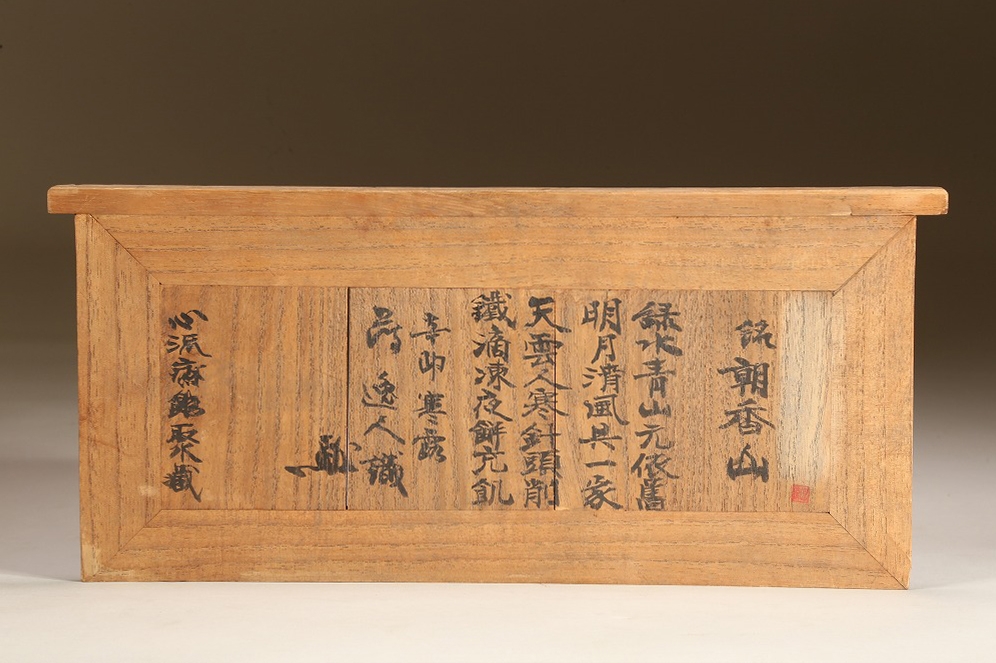 銘 朝香山
緑水青山元依舊
明月清風共一家
天雲人寒針頭削
鐵滴凍夜餅充飢
辛卯寒露
逸人識
心派齋銘聚藏